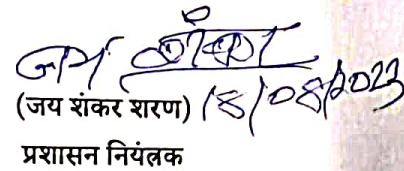 जय शंकर
(जय शंकर शरण) 18/08/2023
प्रशासन नियंत्रक